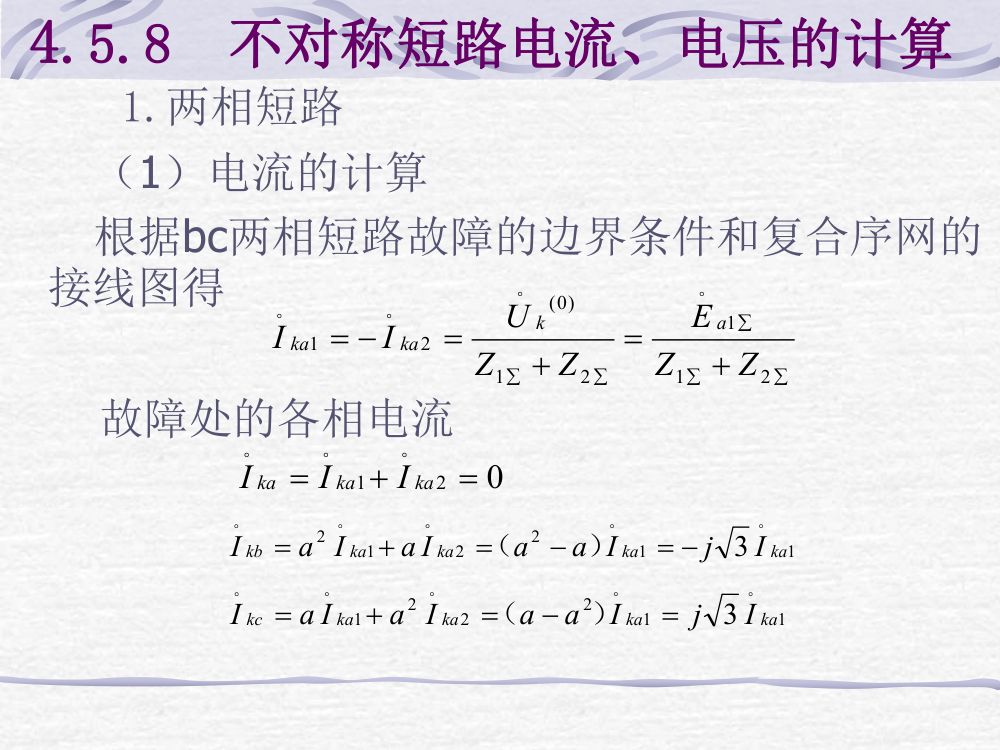 4.5.8 不对称短路电流、电压的计算
1.两相短路
（1）电流的计算
根据bc两相短路故障的边界条件和复合序网的
接线图得
$\overset{\circ}{I}_{ka1} = -\overset{\circ}{I}_{ka2} = \frac{\overset{\circ}{U}_k^{(0)}}{Z_{1\Sigma} + Z_{2\Sigma}} = \frac{\overset{\circ}{E}_{a1\Sigma}}{Z_{1\Sigma} + Z_{2\Sigma}}$
故障处的各相电流
$\overset{\circ}{I}_{ka} = \overset{\circ}{I}_{ka1} + \overset{\circ}{I}_{ka2} = 0$
$\overset{\circ}{I}_{kb} = a^2 \overset{\circ}{I}_{ka1} + a \overset{\circ}{I}_{ka2} =（a^2 - a）\overset{\circ}{I}_{ka1} = -j\sqrt{3} \overset{\circ}{I}_{ka1}$
$\overset{\circ}{I}_{kc} = a \overset{\circ}{I}_{ka1} + a^2 \overset{\circ}{I}_{ka2} =（a - a^2）\overset{\circ}{I}_{ka1} = j\sqrt{3} \overset{\circ}{I}_{ka1}$